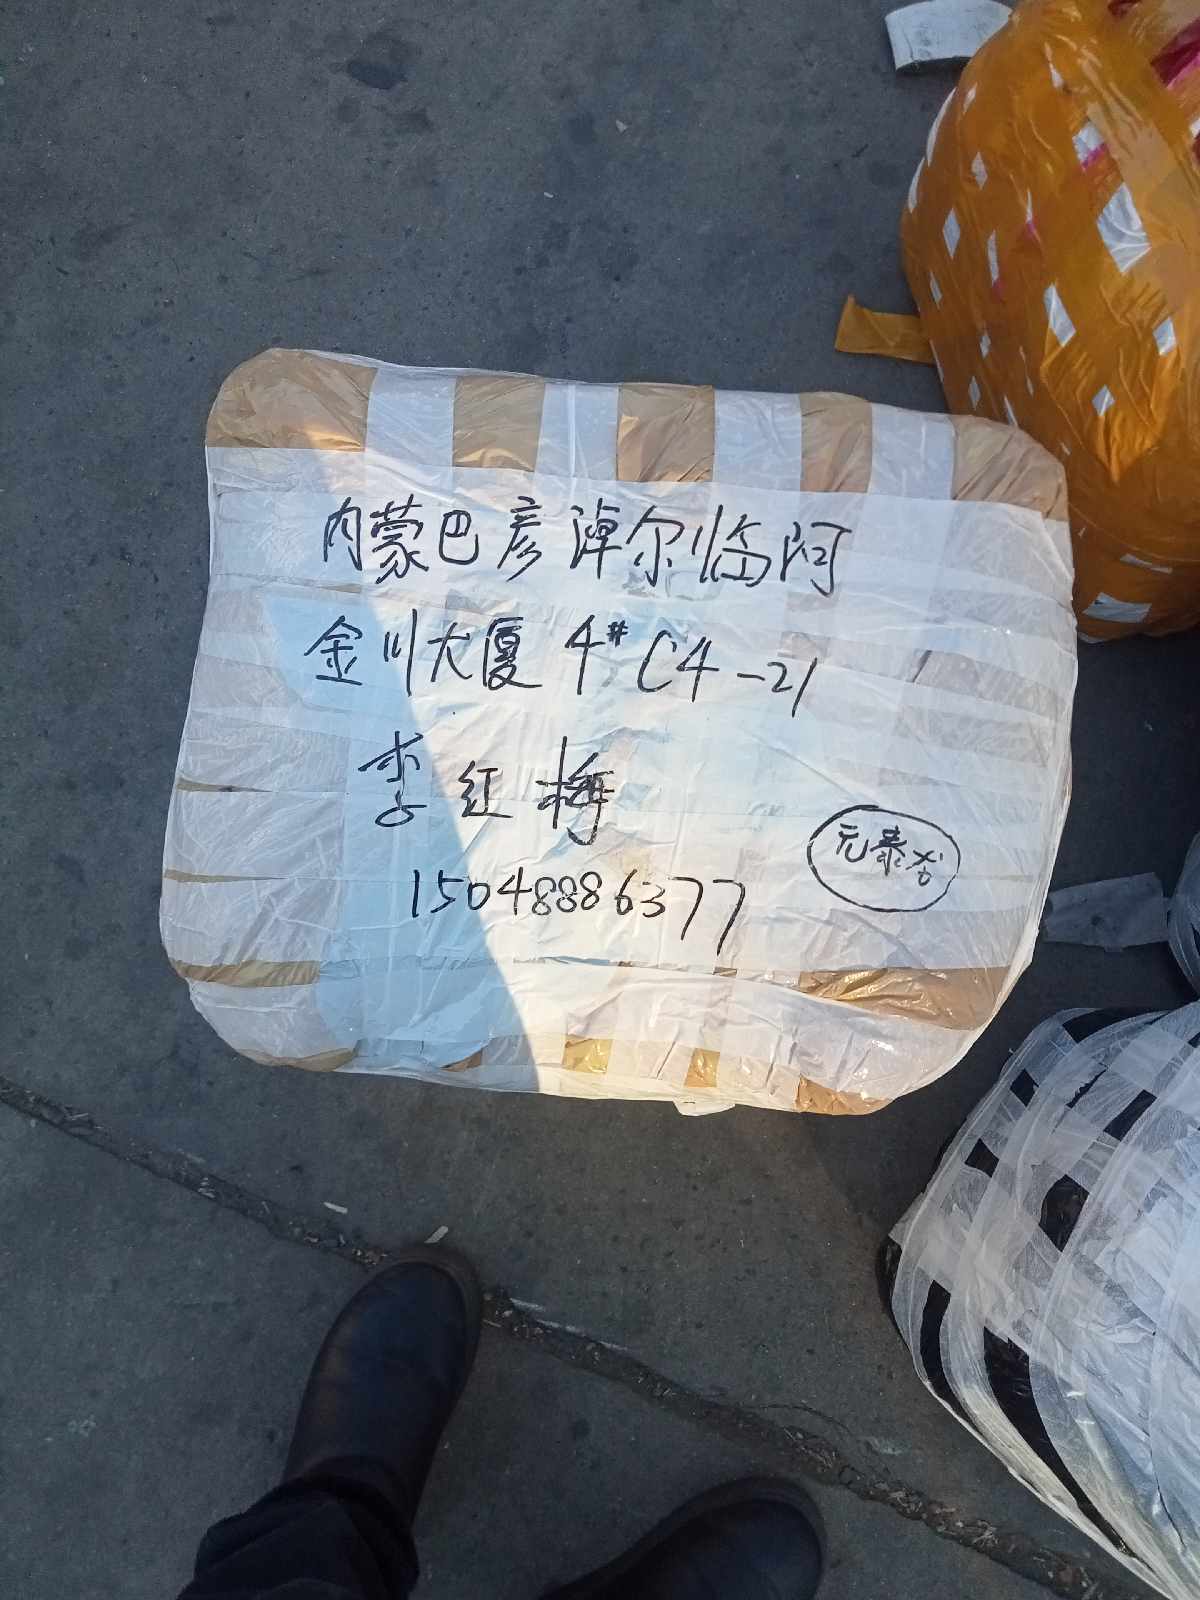 内蒙巴彦淖尔临河
金川大厦 4# C4-21
李红梅
15048886377
元泰